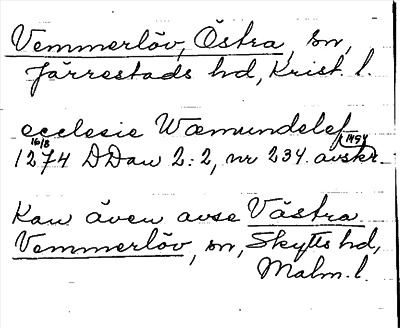 Vemmerlöv, Östra, sn,
Järrestads hd, Krist. l.
ecclesie Wæmundelef
16/8 1494
1274 DDan 2:2, nr 234. avskr.
Kan även avse Västra
Vemmerlöv, sn, Skytts hd,
Malm. l.